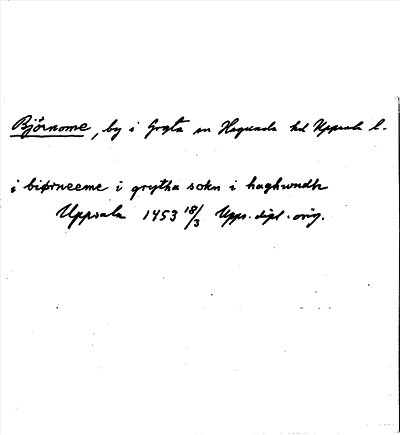 Björnome, by i Gryta sn Hagunda hd Uppsala l.
i biørneeme i grytha sokn i haghwndh
Uppsala 1453 18/3 Upps. dipl. orig.